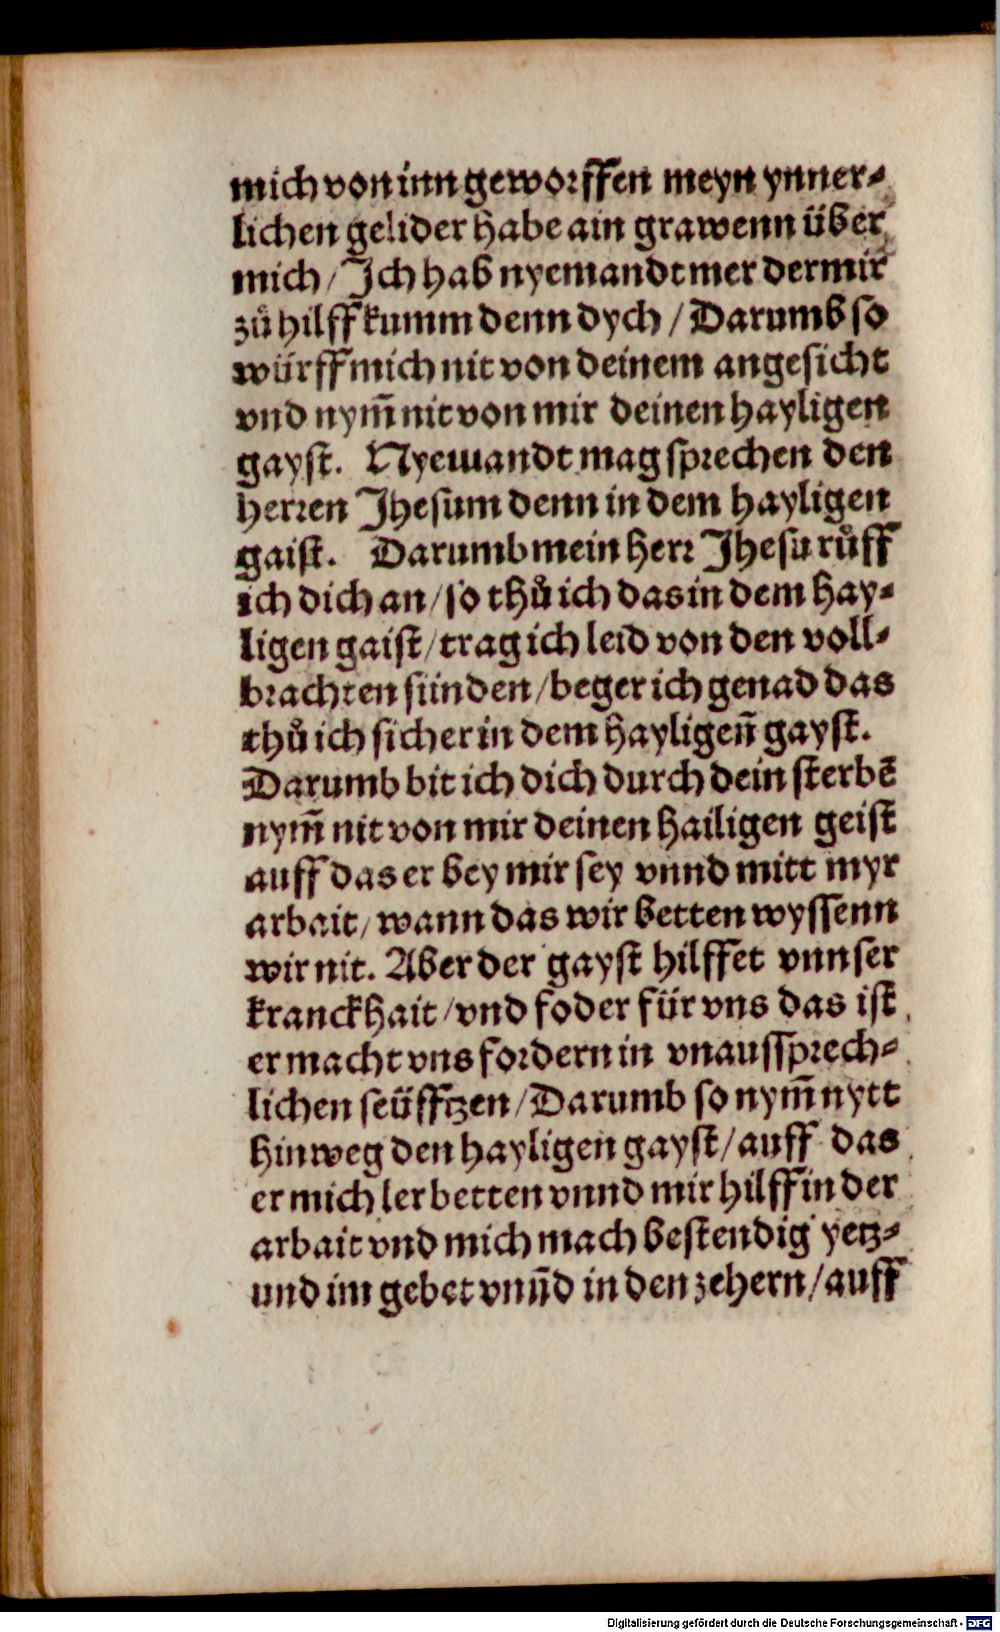 mich von inn geworffen meyn ynner⸗
lichen gelider habe ain grawenn über
mich / Ich hab nyemandt mer der mir
zuͦ hilff kumm denn dych / Darumb so
würff mich nit von deinem angesicht
vnd nym̃ nit von mir deinen hayligen
gayst. Nyemandt mag sprechen den
herren Jhesum denn in dem hayligen
gaist. Darumb mein herr Jhesu ruͦff
ich dich an / so thuͦ ich das in dem hay⸗
ligen gaist / trag ich leid von den voll⸗
brachten sünden / beger ich genad das
thuͦ ich sicher in dem hayligen̄ gayst.
Darumb bit ich dich durch dein sterbē
nym̃ nit von mir deinen hailigen geist
auff das er bey mir sey vnnd mitt myr
arbait / wann das wir betten wyssenn
wir nit. Aber der gayst hilffet vnnser
kranckhait / vnd foder für vns das ist
er macht vns fordern in vnaussprech⸗
lichen seüfftzen / Darumb so nym̃ nytt
hinweg den hayligen gayst / auff das
er mich ler betten vnnd mir hilff in der
arbait vnd mich mach bestendig yetz⸗
und im gebet vnn̄d in den zehern / auff
Digitalisierung gefördert durch die Deutsche Forschungsgemeinschaft - DFG